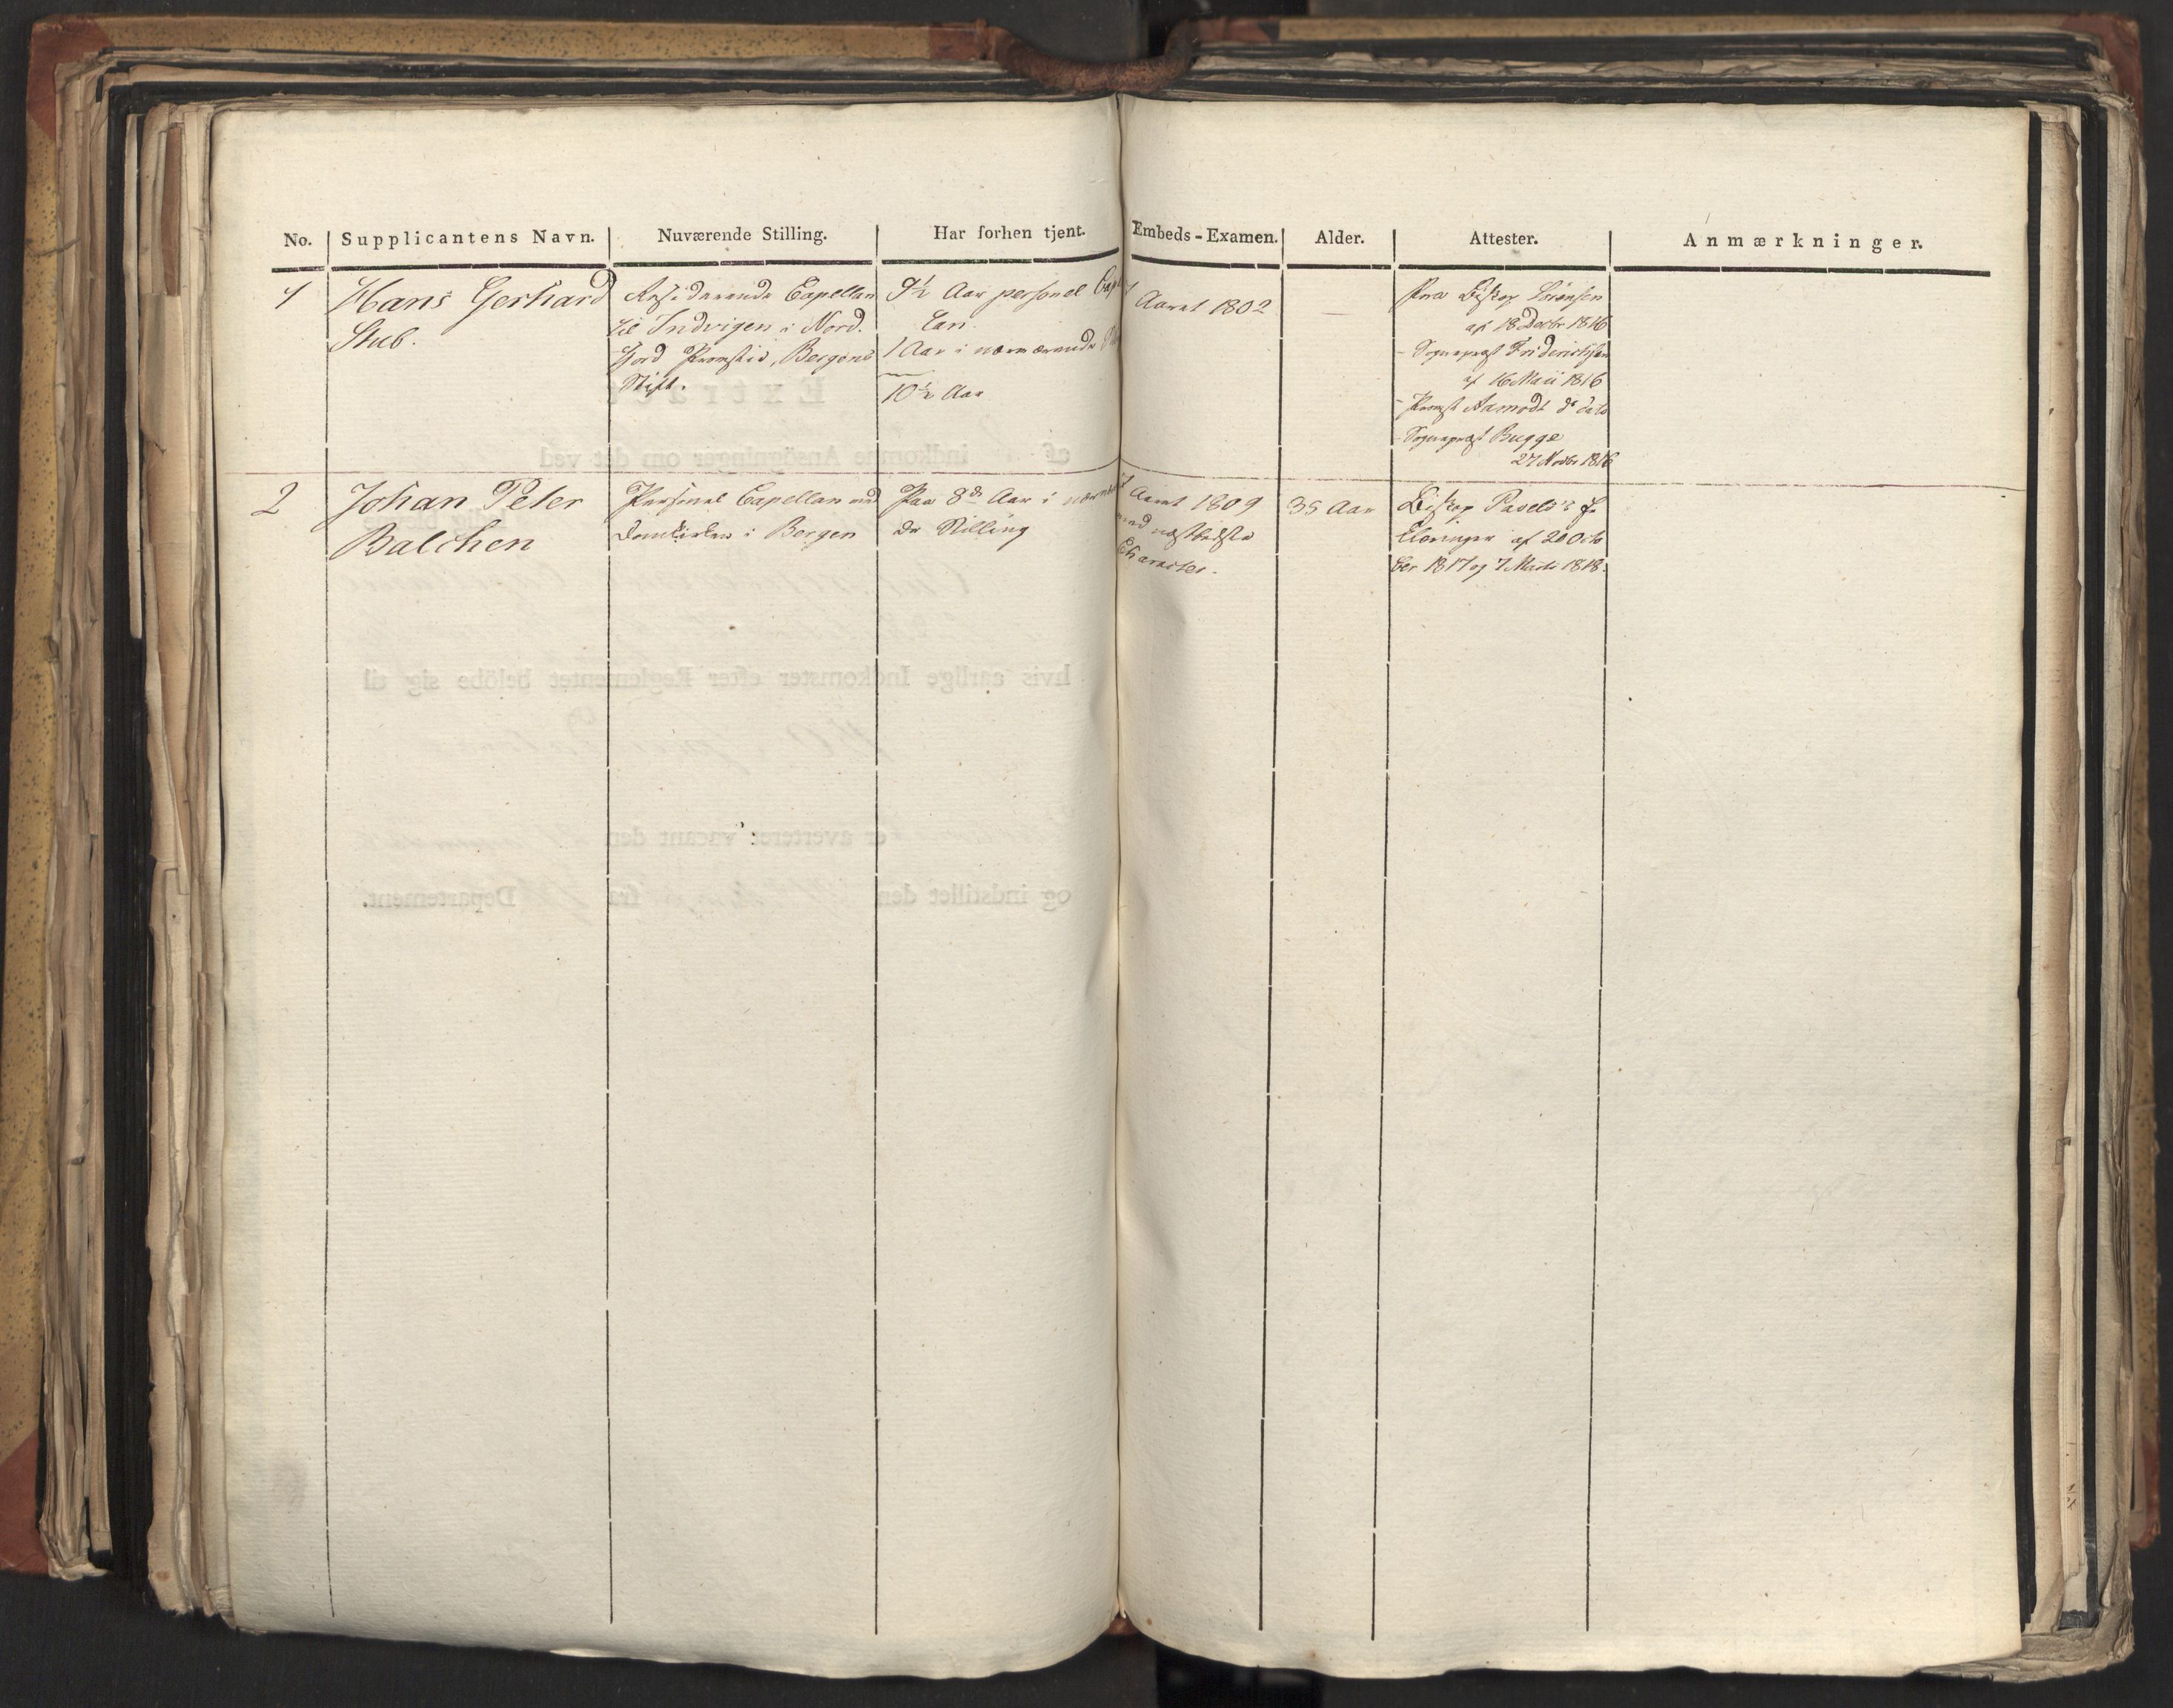 No. Supplicantens Navn. Nuværende Stilling. Har forhen tjent. Embeds-Examen. Alder. Attester. Anmærkninger.
1
Hans Gerhard
Stub.
Residerende Capellan
til Indvigen i Nord-
fjord Provstie, Bergens
Stift.
9½ Aar personel Capel
lan
1 Aar i nærværende
10½ Aar
Aaret 1802
—
Fra Biskop Sörensen
af 18 Decbr 1816
- Sognepræst Friderichsen
af 16 Maii 1816
- Provst Aamodt ds dato
- Sognepræst Bugge
27 Novbr 1816
2
Johan Peter
Balchen
Personel Capellan ved
Domkirken i Bergen
Paa 8de Aar i nærværen
de Stilling
Aaret 1809
med næstbedste
Character.
35 Aar
Biskop Pavels's Er
klæringer af 20 Octo
ber 1817 og 7 Marts 1818.
Extract
af indkomne Ansögninger om det ved
hvis aarlige Indkomster efter Reglementet belöbe sig til
er averteret vacant den
og indstillet den fra Departement.